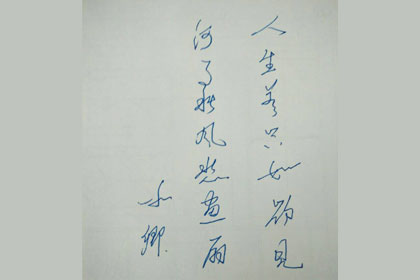 人生若只如初见
何事秋风悲画扇
卿